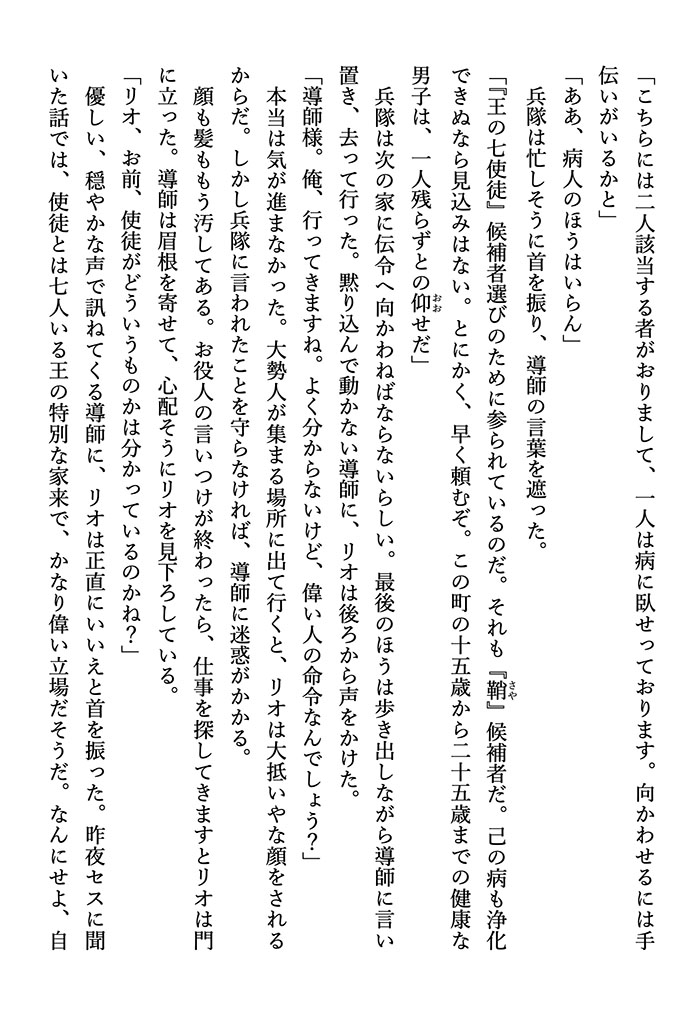 「こちらには二人該当する者がおりまして、一人は病に臥せっております。向かわせるには手
伝いがいるかと」
「ああ、病人のほうはいらん」
　兵隊は忙しそうに首を振り、導師の言葉を遮った。
「『王の七使徒』候補者選びのために参られているのだ。それも『鞘』候補者だ。己の病も浄化
できぬなら見込みはない。とにかく、早く頼むぞ。この町の十五歳から二十五歳までの健康な
男子は、一人残らずとの仰せだ」
　兵隊は次の家に伝令へ向かわねばならないらしい。最後のほうは歩き出しながら導師に言い
置き、去って行った。黙り込んで動かない導師に、リオは後ろから声をかけた。
「導師様。俺、行ってきますね。よく分からないけど、偉い人の命令なんでしょう？」
　本当は気が進まなかった。大勢人が集まる場所に出て行くと、リオは大抵いやな顔をされる
からだ。しかし兵隊に言われたことを守らなければ、導師に迷惑がかかる。
　顔も髪ももう汚してある。お役人の言いつけが終わったら、仕事を探してきますとリオは門
に立った。導師は眉根を寄せて、心配そうにリオを見下ろしている。
「リオ、お前、使徒がどういうものかは分かっているのかね？」
　優しい、穏やかな声で訊ねてくる導師に、リオは正直にいいえと首を振った。昨夜セスに聞
いた話では、使徒とは七人いる王の特別な家来で、かなり偉い立場だそうだ。なんにせよ、自